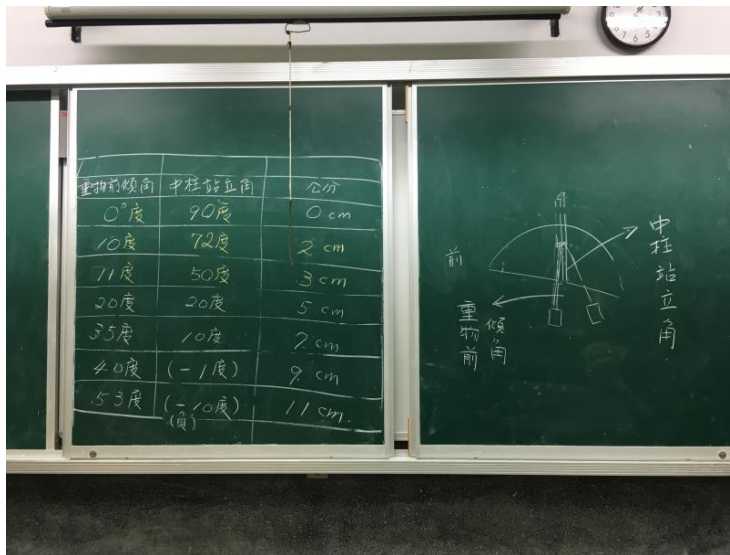 重物前傾角 中柱站立角 公分
0°度 90度 0 cm
10度 72度 2 cm
11度 50度 3 cm
20度 20度 5 cm
35度 10度 7 cm
40度 (-1度) 9 cm
53度 (-10度) 11 cm.
(負)
前
中柱站立角
重物前
傾角